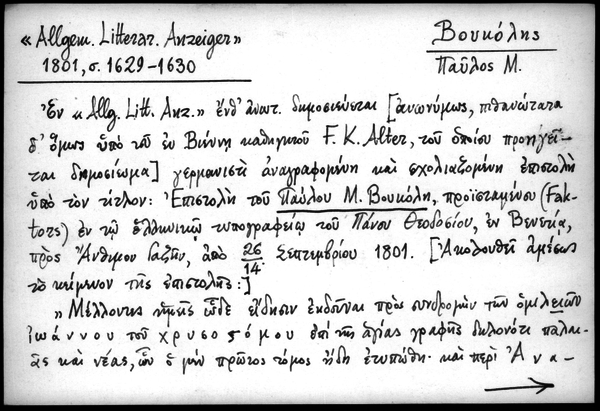 « Allgem. Litterar. Anzeiger »
1801, σ. 1629-1630
Βουκόλης
Παῦλος Μ.
Ἐν « Allg. Litt. Anz. » ἔνθ' ἀνωτ. δημοσιεύεται [ἀνωνύμως, πιθανώτατα
δ' ὅμως ὑπὸ τοῦ ἐν Βιέννῃ καθηγητοῦ F. K. Alter, τοῦ ὁποίου προηγεῖ-
ται δημοσίευμα] γερμανιστὶ ἀναγραφομένη καὶ σχολιαζομένη ἐπιστολὴ
ὑπὸ τὸν τίτλον: Ἐπιστολὴ τοῦ Παύλου Μ. Βουκόλη, προϊσταμένου (Fak-
tors) ἐν τῷ ἑλληνικῷ τυπογραφείῳ τοῦ Πάνου Θεοδοσίου, ἐν Βενετίᾳ,
πρὸς Ἄνθιμον Γαζῆν, ἀπὸ 26/14 Σεπτεμβρίου 1801. [Ἀκολουθεῖ ἀμέσως
τὸ κείμενον τῆς ἐπιστολῆς:]
» Μέλλοντες ἡμεῖς ὧδε εἴδησιν ἐκδοῦναι πρὸς συνδρομὴν τῶν ὁμιλειῶν
Ἰωάννου τοῦ χρυσοστόμου ἐπὶ τῆς ἁγίας γραφῆς δηλονότι παλαι-
ᾶς καὶ νέας, ὧν ὁ μὲν πρῶτος τόμος ἤδη ἐτυπώθη· καὶ περὶ Ἀνα-